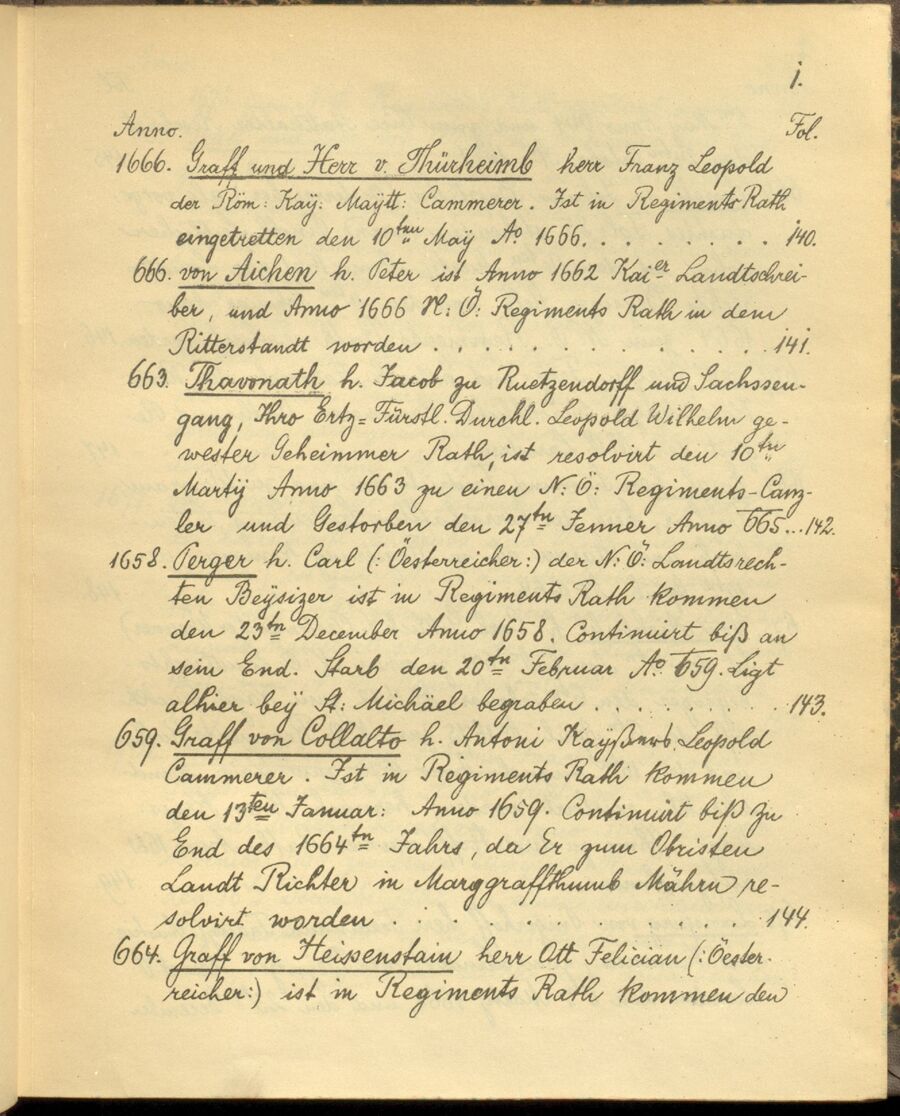 1.
Anno. Fol.
1666. Graff und Herr v. Thürheimb herr Franz Leopold
der Röm: Kaÿ: Maÿtt: Cammerer. Ist in Regiments Rath
eingetretten den 10ten Maÿ Ao 1666. . . . . . . . . 140.
666. von Aichen h. Peter ist Anno 1662 Kaier Landtschrei-
ber, und Anno 1666 N: Ö: Regiments Rath in dem
Ritterstandt worden . . . . . . . . . . . . . 141.
663. Thavonath h. Jacob zu Ruetzendorff und Sachssen-
gang, Ihro Ertz=Fürstl. Durchl. Leopold Wilhelm ge-
wester Geheimmer Rath, ist resolvirt den 10tn
Martÿ Anno 1663 zu einen N: Ö: Regiments-Canz-
ler und Gestorben den 27tn Jenner Anno 665...142.
1658. Perger h. Carl (: Öesterreicher:) der N: Ö: Landtsrech-
ten Beÿsizer ist in Regiments Rath kommen
den 23tn December Anno 1658. Continuirt biß an
sein End. Starb den 20tn Februar Ao. 659. Ligt
alhier beÿ St: Michäel begraben . . . . . . . . . 143.
659. Graff von Collalto h. Antoni Kaÿßers Leopold
Cammerer. Ist in Regiments Rath kommen
den 13ten Januar: Anno 1659. Continuirt biß zu
End des 1664tn Jahrs, da Er zum Obristen
Landt Richter in Marggraffthumb Mährn re-
solvirt worden . . . . . . . . . . . . . 144.
664. Graff von Heissenstain herr Ott Felician (: Öester-
reicher:) ist in Regiments Rath kommen den